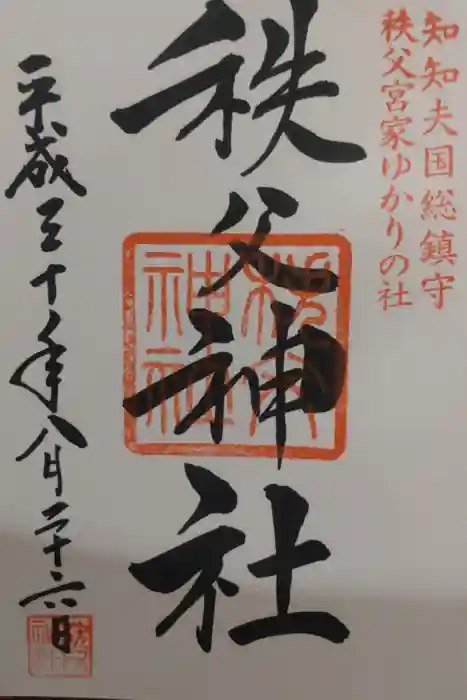 知知夫国総鎮守
秩父宮家ゆかりの社
秩父神社
秩父神社
平成三十年八月二十六日